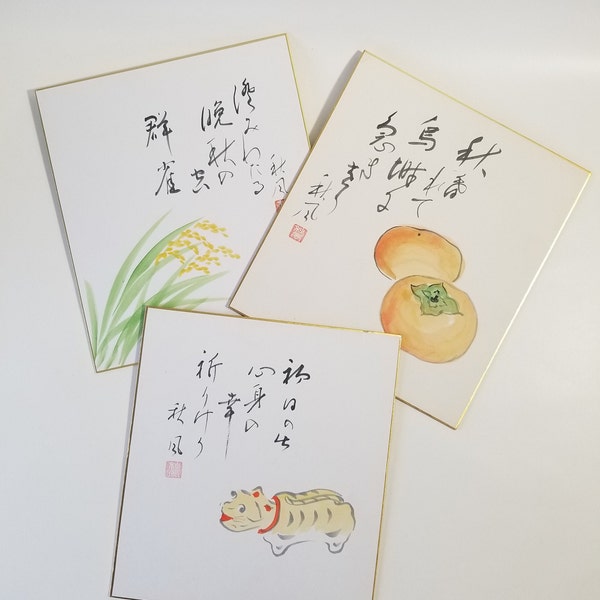 澄みわたる
晩秋の空
群雀
秋風
秋暮れて
烏
急ぎ
秋風
初日の出
心身の
幸
祈りけり
秋風